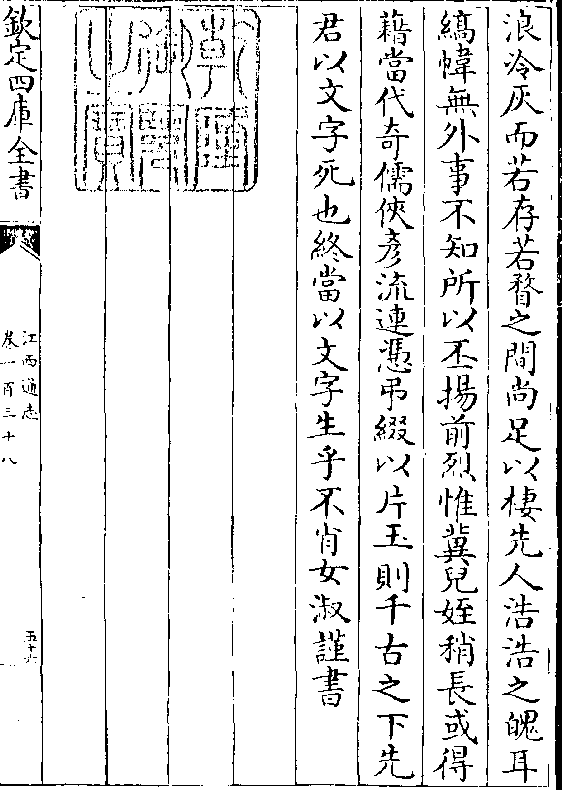 浪冷灰而若存若瞀之間尚足以棲先人浩浩之魄耳
縞幃無外事不知所以丕揚前烈惟冀兒姪稍長或得
藉當代奇儒俠彥流連憑弔綴以片玉則千古之下先
君以文字死也終當以文字生乎不肖女淑謹書
乾隆御覽之寶
欽定四庫全書
江西通志
卷一百三十八
五十六